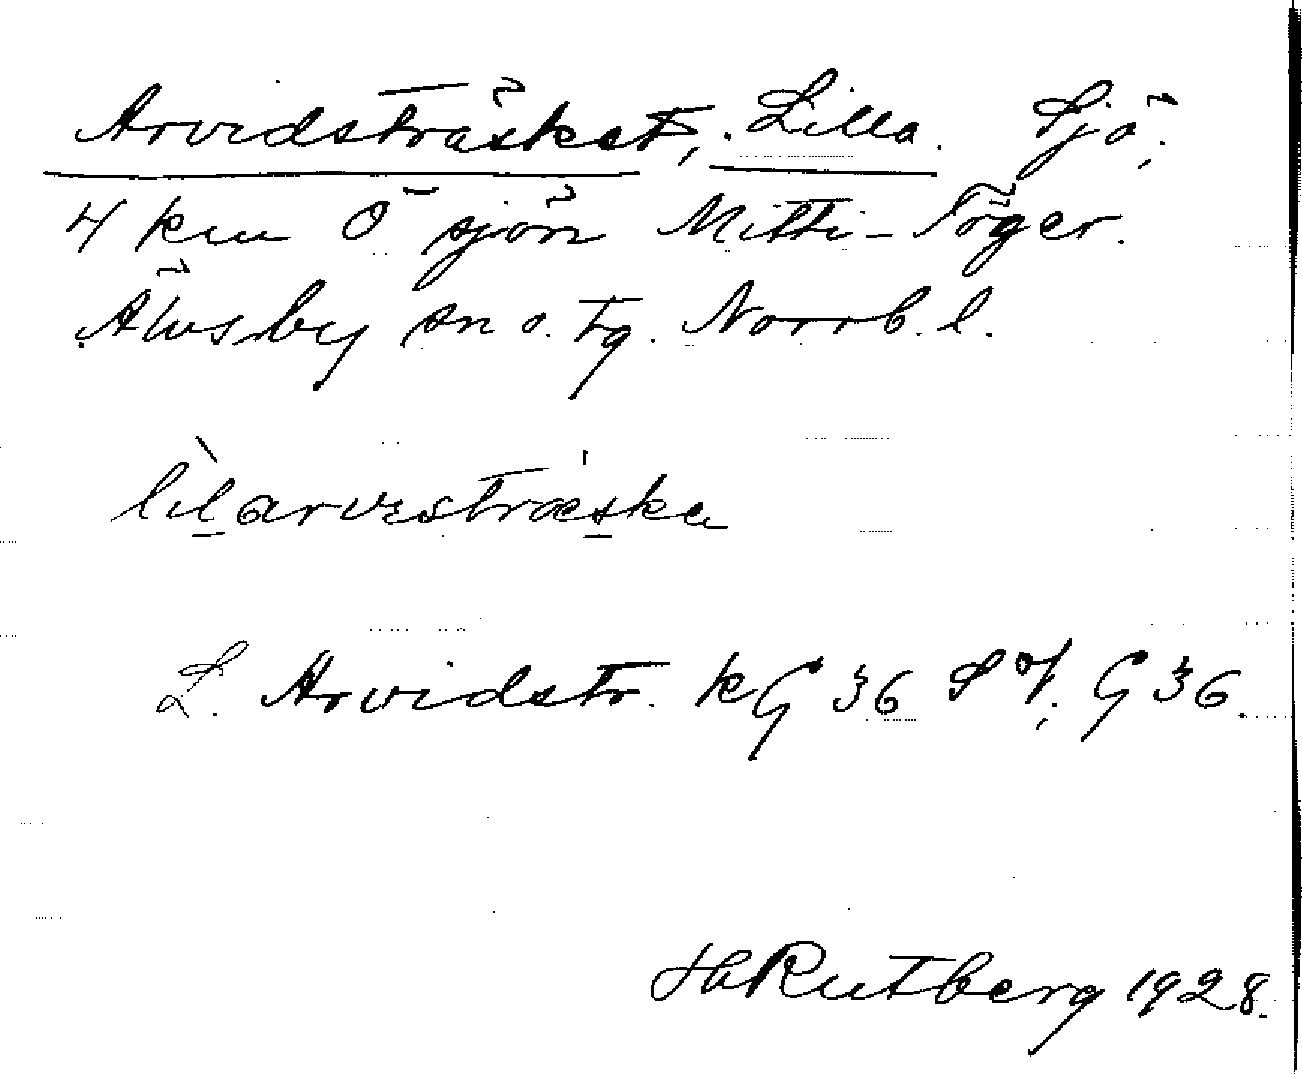 Arvidsträsket, Lilla. Sjö,
4 km Ö sjön Mitti-Töger.
Älvsby sn o. tg. Norrb. l.
lìlarvestræska
L. Arvidstr. kG 36 SV, G 36.
H Rutberg 1928.